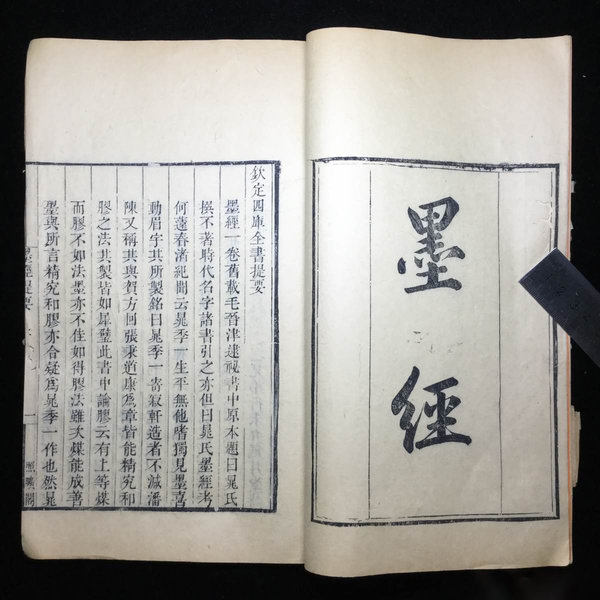 墨經
欽定四庫全書提要
墨經一卷舊載毛晉津逮祕書中原本題曰晁氏
撰不著時代名字諸書引之亦但曰晁氏墨經考
何薳春渚紀聞云晁季一生平無他嗜獨見墨喜
動眉宇其所製銘曰晁季一寄寂軒造者不減潘
陳又稱其與賀方回張秉道康為章皆能精究和
膠之法其製皆如犀璧此書中論膠云有上等煤
而膠不如法墨亦不佳如得膠法雖次煤能成善
墨與所言精究和膠亦合疑為晁季一作也然晁
墨經提要
一
照曠閣